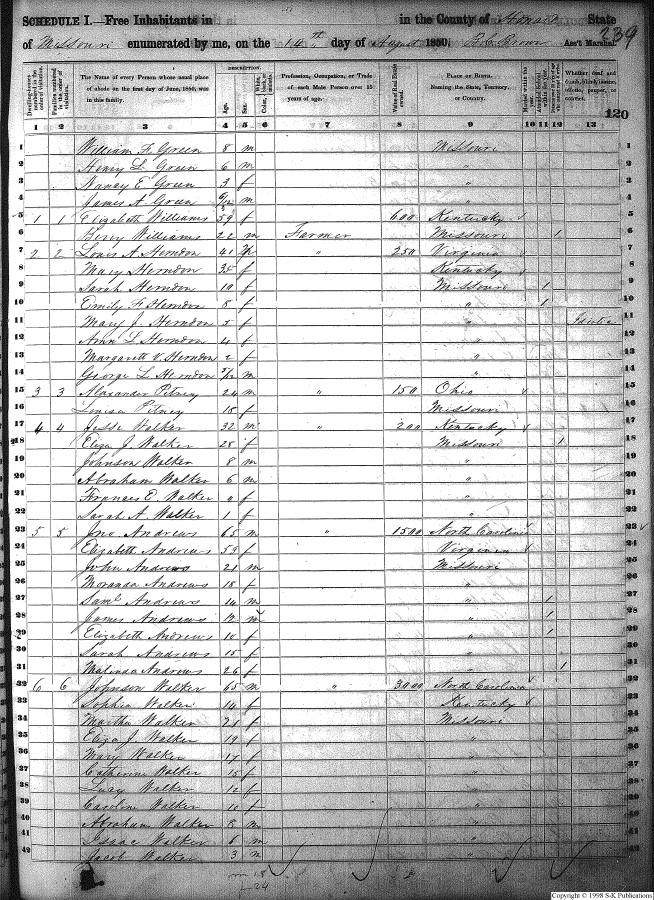 SCHEDULE I.—Free Inhabitants in in the County of Howard State
of Missouri enumerated by me, on the 14th day of August 1850. Ass't Marshal. 239
The Name of every Person whose usual place of abode on the first day of June, 1850, was in this family.
DESCRIPTION.
Age.
Sex.
Profession, Occupation, or Trade of each Male Person over 15 years of age.
Value of Real Estate owned.
PLACE OF BIRTH. Naming the State, Territory, or Country.
Whether deaf and dumb, blind, insane, idiotic, pauper, or convict.
120
1 2 3 4 5 6 7 8 9 10 11 12 13
1 William F. Green 8 m Missouri 1
2 Henry L. Green 6 m " 2
3 Nancy E. Green 3 f " 3
4 James A. Green m " 4
5 1 1 Elizabeth Williams 59 f 600 Kentucky 5
6 Williams 22 m Farmer Missouri 1 6
7 2 2 Louis A. Herndon 41 m " 250 Virginia 7
8 Mary Herndon f Kentucky 8
9 Sarah Herndon 10 f Missouri 1 9
10 Emily F. Herndon 8 f " 1 10
11 Mary J. Herndon 5 f " 11
12 Ann L. Herndon 4 f " 12
13 Margarett V. Herndon 2 f " 13
14 George L. Herndon m " 14
15 3 3 Alexander Pitney 24 m " 150 Ohio 15
16 Louisa Pitney 18 f Missouri 16
17 4 4 Jesse Walker 32 m " 200 Kentucky 17
18 Eliza J. Walker 28 f Missouri 1 18
19 Johnson Walker 8 m " 19
20 Abraham Walker 6 m " 20
21 Frances E. Walker f " 21
22 Sarah A. Walker 1 f " 22
23 5 5 Jno Andrews 65 m " 1500 North Carolina 23
24 Elizabeth Andrews 59 f Virginia 24
25 John Andrews 21 m Missouri 25
26 Andrews 18 f " 26
27 Saml Andrews 14 m " 1 27
28 James Andrews 12 m " 1 28
29 Elizabeth Andrews 10 f " 1 29
30 Sarah Andrews 15 f " 30
31 Malinda Andrews 26 f " 1 31
32 6 6 Johnson Walker 65 m " 3000 North Carolina 32
33 Sophia Walker f Kentucky 33
34 Martha Walker 21 f Missouri 34
35 Eliza J. Walker 19 f " 35
36 Mary Walker 17 f " 36
37 Catherine Walker 15 f " 37
38 Lucy Walker 12 f " 38
39 Caroline Walker 10 f " 39
40 Abraham Walker 8 m " 40
41 Isaac Walker 6 m " 41
42 Jacob Walker 3 m " 42
m 18
f 24
Copyright © 1998 S-K Publications